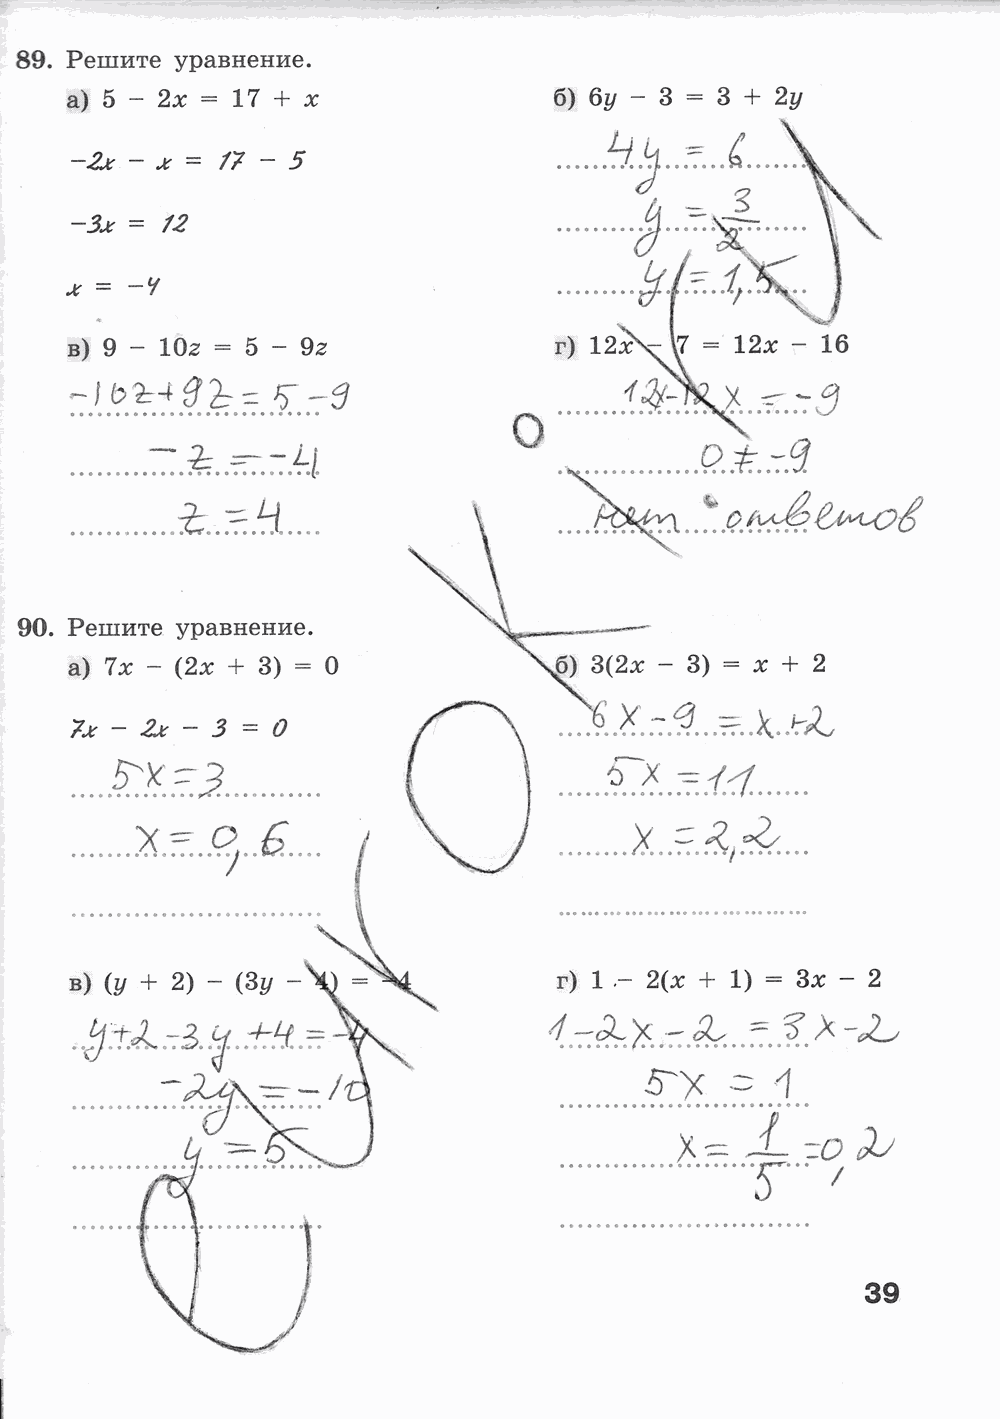 89. Решите уравнение.
а) 5 − 2x = 17 + x
−2x − x = 17 − 5
−3x = 12
x = −4
б) 6y − 3 = 3 + 2y
4y = 6
y = 3/2
y = 1,5
в) 9 − 10z = 5 − 9z
−10z + 9z = 5 − 9
−z = −4
z = 4
г) 12x − 7 = 12x − 16
12x − 12x = −9
0 ≠ −9
нет ответов
90. Решите уравнение.
а) 7x − (2x + 3) = 0
7x − 2x − 3 = 0
5x = 3
x = 0,6
б) 3(2x − 3) = x + 2
6x − 9 = x + 2
5x = 11
x = 2,2
в) (y + 2) − (3y − 4) = −4
y + 2 − 3y + 4 = −4
−2y = −10
y = 5
г) 1 − 2(x + 1) = 3x − 2
1 − 2x − 2 = 3x − 2
5x = 1
x = 1/5 = 0,2
39